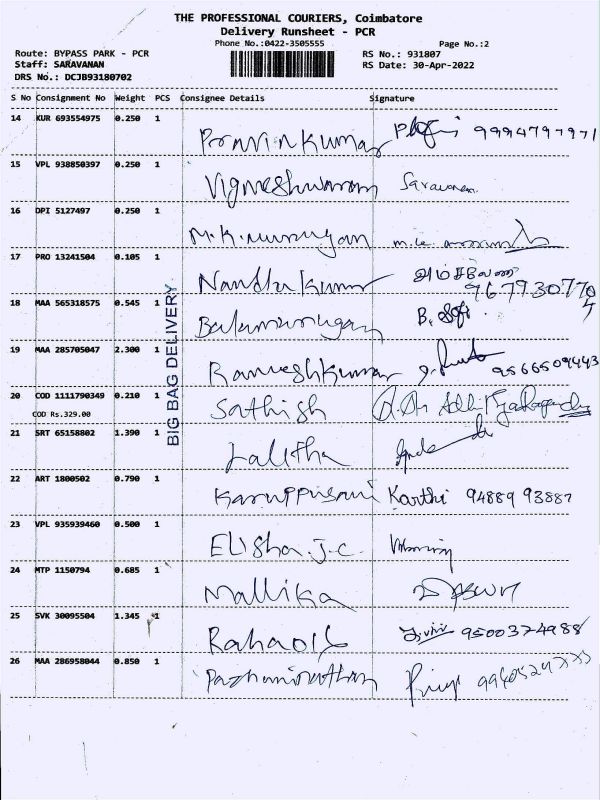 THE PROFESSIONAL COURIERS, Coimbatore
Delivery Runsheet - PCR
Phone No.:0422-3505555
Page No.:2
Route: BYPASS PARK - PCR
RS No.: 931807
Staff: SARAVANAN
RS Date: 30-Apr-2022
DRS No.: DCJB93180702
S No Consignment No Weight PCS Consignee Details Signature
14 KUR 693554975 0.250 1 Pravin Kumar 9994797971
15 VPL 938850397 0.250 1 Vigneshwaran Saravanan
16 DPI 5127497 0.250 1 M.K.murugan
17 PRO 13241504 0.105 1 Nandha Kumar
9677930770
18 MAA 565318575 0.545 1 Balamurugan B.
19 MAA 285705047 2.300 1 Rameshkumar 9566509443
20 COD 1111790349 0.210 1 Sathish
COD Rs.329.00
21 SRT 65158802 1.390 1 Lalitha
22 ART 1800502 0.790 1 Karuppusami Karthi 94889 93887
23 VPL 935939460 0.500 1 Elisha.J.C.
24 MTP 1150794 0.685 1 Mallika
25 SVK 30095504 1.345 1 9500374988
26 MAA 286958044 0.850 1 Priya
BIG BAG DELIVERY